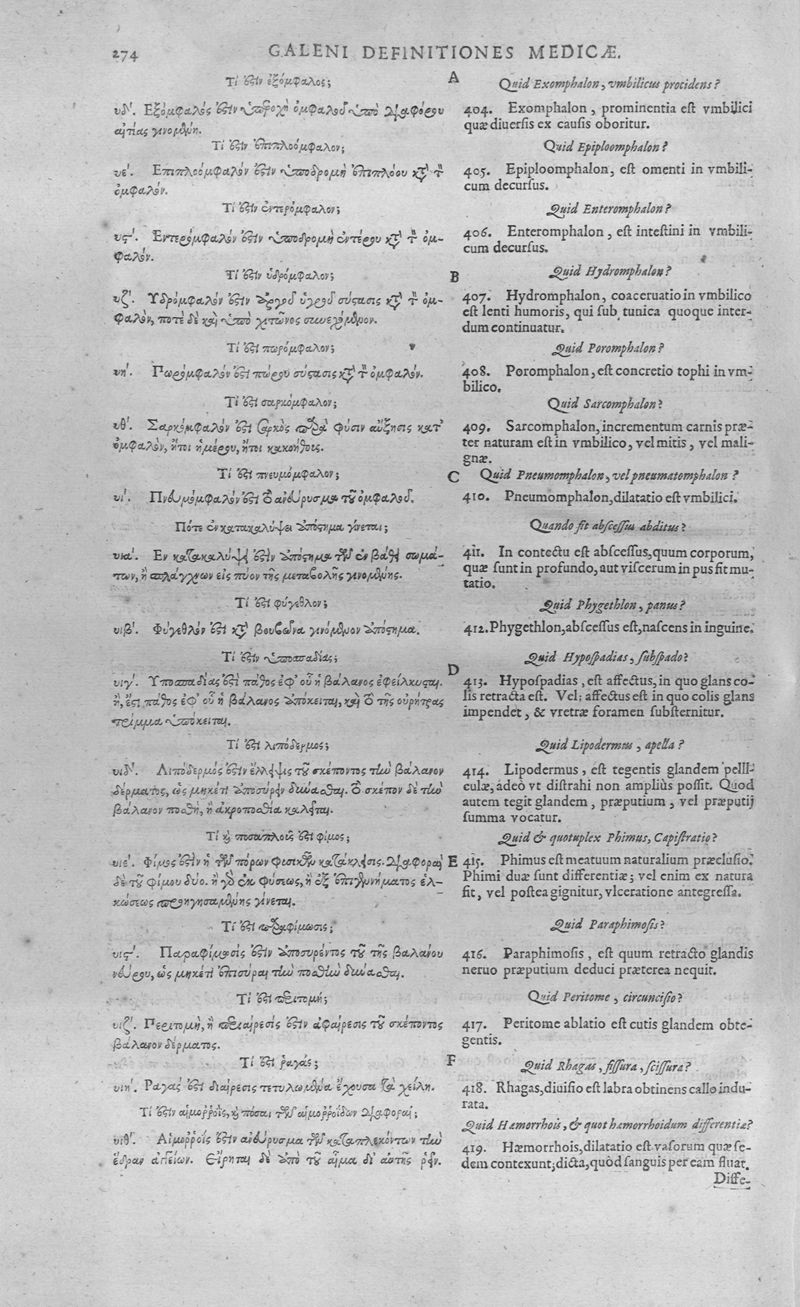 274 GALENI DEFINITIONES MEDICÆ.
Τί ἐστιν ἐξόμφαλος;
υδʹ. Ἐξόμφαλός ἐστιν ὑπεροχὴ ὀμφαλοῦ ὑπὸ διαφόρου
αἰτίας γινομένη.
Τί ἐστιν ἐπιπλοόμφαλον;
υεʹ. Ἐπιπλοόμφαλόν ἐστιν ὑποδρομὴ ἐπιπλόου κατὰ τὸν
ὀμφαλόν.
Τί ἐστιν ἐντερόμφαλον;
υςʹ. Ἐντερόμφαλόν ἐστιν ὑποδρομὴ ἐντέρου κατὰ τὸν ὀμ-
φαλόν.
Τί ἐστιν ὑδρόμφαλον;
υζʹ. Ὑδρόμφαλόν ἐστιν ἀργοῦ ὑγροῦ σύστασις κατὰ τὸν ὀμ-
φαλόν, ποτὲ δὲ καὶ ὑπὸ χιτῶνος συνεχόμενον.
Τί ἐστι πωρόμφαλον;
υηʹ. Πωρόμφαλόν ἐστι πώρου σύστασις κατὰ τὸν ὀμφαλόν.
Τί ἐστι σαρκόμφαλον;
υθʹ. Σαρκόμφαλόν ἐστι σαρκὸς παρὰ φύσιν αὔξησις κατ'
ὀμφαλόν, ἤτοι ἡμέρου, ἤτοι κακοήθους.
Τί ἐστι πνευμόμφαλον;
υιʹ. Πνευμόμφαλόν ἐστι τὸ ἀνεύρυσμα τοῦ ὀμφαλοῦ.
Πότε ἐν κατακαλύψει ἀπόστημα γίνεται;
υιαʹ. Ἐν κατακαλύψει ἐστὶν ἀπόστημα τῶν ἐν βάθει σωμά-
των, ἢ σπλάγχνων εἰς πύον τῆς μεταβολῆς γινομένης.
Τί ἐστι φύγεθλον;
υιβʹ. Φύγεθλόν ἐστι κατὰ βουβῶνα γινόμενον ἀπόστημα.
Τί ἐστιν ὑποσπαδίας;
υιγʹ. Ὑποσπαδίας ἐστὶ πάθος ἐφ' οὗ ἡ βάλανος ἐφείλκυσται.
ἢ, ἔστι πάθος ἐφ' οὗ ἡ βάλανος ἀπόκειται, καὶ τὸ τῆς οὐρήτρας
τρῆμα ὑπόκειται.
Τί ἐστι λιπόδερμος;
υιδʹ. Λιπόδερμός ἐστιν ἔλλειψις τοῦ σκέποντος τὴν βάλανον
δέρματος, ὡς μηκέτι ἀποσύρειν δύνασθαι. τὸ σκέπον δὲ τὴν
βάλανον πόσθη, ἢ ἀκροποσθία καλεῖται.
Τί καὶ ποσαπλοῦς ἐστι φίμος;
υιεʹ. Φίμος ἐστὶν ἡ τῶν πόρων φυσικῶν κατάκλεισις. διαφοραὶ
δὲ τοῦ φίμου δύο. ἢ γὰρ ἐκ φύσεως, ἢ ἐξ ἐπιγεννήματος ἑλ-
κώσεως προηγησαμένης γίνεται.
Τί ἐστι παραφίμωσις;
υιςʹ. Παραφίμωσίς ἐστιν ἀποσυρέντος τοῦ τῆς βαλάνου
νεύρου, ὡς μηκέτι ἐπισύραι τὴν πόσθην δύνασθαι.
Τί ἐστι περιτομή;
υιζʹ. Περιτομὴ, ἢ περιαίρεσίς ἐστιν ἀφαίρεσις τοῦ σκέποντος
βάλανον δέρματος.
Τί ἐστι ῥαγάς;
υιηʹ. Ῥαγάς ἐστι διαίρεσις τετυλωμένα ἔχουσα τὰ χείλη.
Τί ἐστιν αἱμοῤῥοῒς, καὶ πόσαι τῶν αἱμοῤῥοΐδων διαφοραί;
υιθʹ. Αἱμοῤῥοΐς ἐστιν ἀνεύρυσμα τῶν καταπλεκόντων τὴν
ἕδραν ἀγγείων. Εἴρηται δὲ ἀπὸ τοῦ αἷμα δι' αὐτῆς ῥεῖν.
A
Quid Exomphalon, vmbilicus procidens?
404. Exomphalon, prominentia est vmbilici
quæ diuersis ex causis oboritur.
Quid Epiploomphalon?
405. Epiploomphalon, est omenti in vmbili-
cum decursus.
Quid Enteromphalon?
406. Enteromphalon, est intestini in vmbili-
cum decursus.
B Quid Hydromphalon?
407. Hydromphalon, coaceruatio in vmbilico
est lenti humoris, qui sub tunica quoque inter-
dum continuatur.
Quid Poromphalon?
408. Poromphalon, est concretio tophi in vm-
bilico.
Quid Sarcomphalon?
409. Sarcomphalon, incrementum carnis præ-
ter naturam est in vmbilico, vel mitis, vel mali-
gnæ.
C Quid Pneumomphalon, vel pneumatomphalon?
410. Pneumomphalon, dilatatio est vmbilici.
Quando fit abscessus abditus?
411. In contectu est abscessus, quum corporum,
quæ sunt in profundo, aut viscerum in pus fit mu-
tatio.
Quid Phygethlon, panus?
412. Phygethlon, abscessus est, nascens in inguine.
Quid Hypospadias, subspado?
D
413. Hypospadias, est affectus, in quo glans co-
lis retracta est. Vel: affectus est in quo colis glans
impendet, & vretræ foramen substernitur.
Quid Lipodermus, apella?
414. Lipodermus, est tegentis glandem pelli-
culæ, adeò vt distrahi non amplius possit. Quod
autem tegit glandem, præputium, vel præputij
summa vocatur.
Quid & quotuplex Phimus, Capistratio?
E 415. Phimus est meatuum naturalium præclusio.
Phimi duæ sunt differentiæ; vel enim ex natura
fit, vel postea gignitur, vlceratione antegressa.
Quid Paraphimosis?
416. Paraphimosis, est quum retracto glandis
neruo præputium deduci præterea nequit.
Quid Peritome, circuncisio?
417. Peritome ablatio est cutis glandem obte-
gentis.
F Quid Rhagas, fissura, scissura?
418. Rhagas, diuisio est labra obtinens callo indu-
rata.
Quid Hæmorrhois, & quot hæmorrhoidum differentiæ?
419. Hæmorrhois, dilatatio est vasorum quæ se-
dem contexunt; dicta, quòd sanguis per eam fluat.
Diffe-